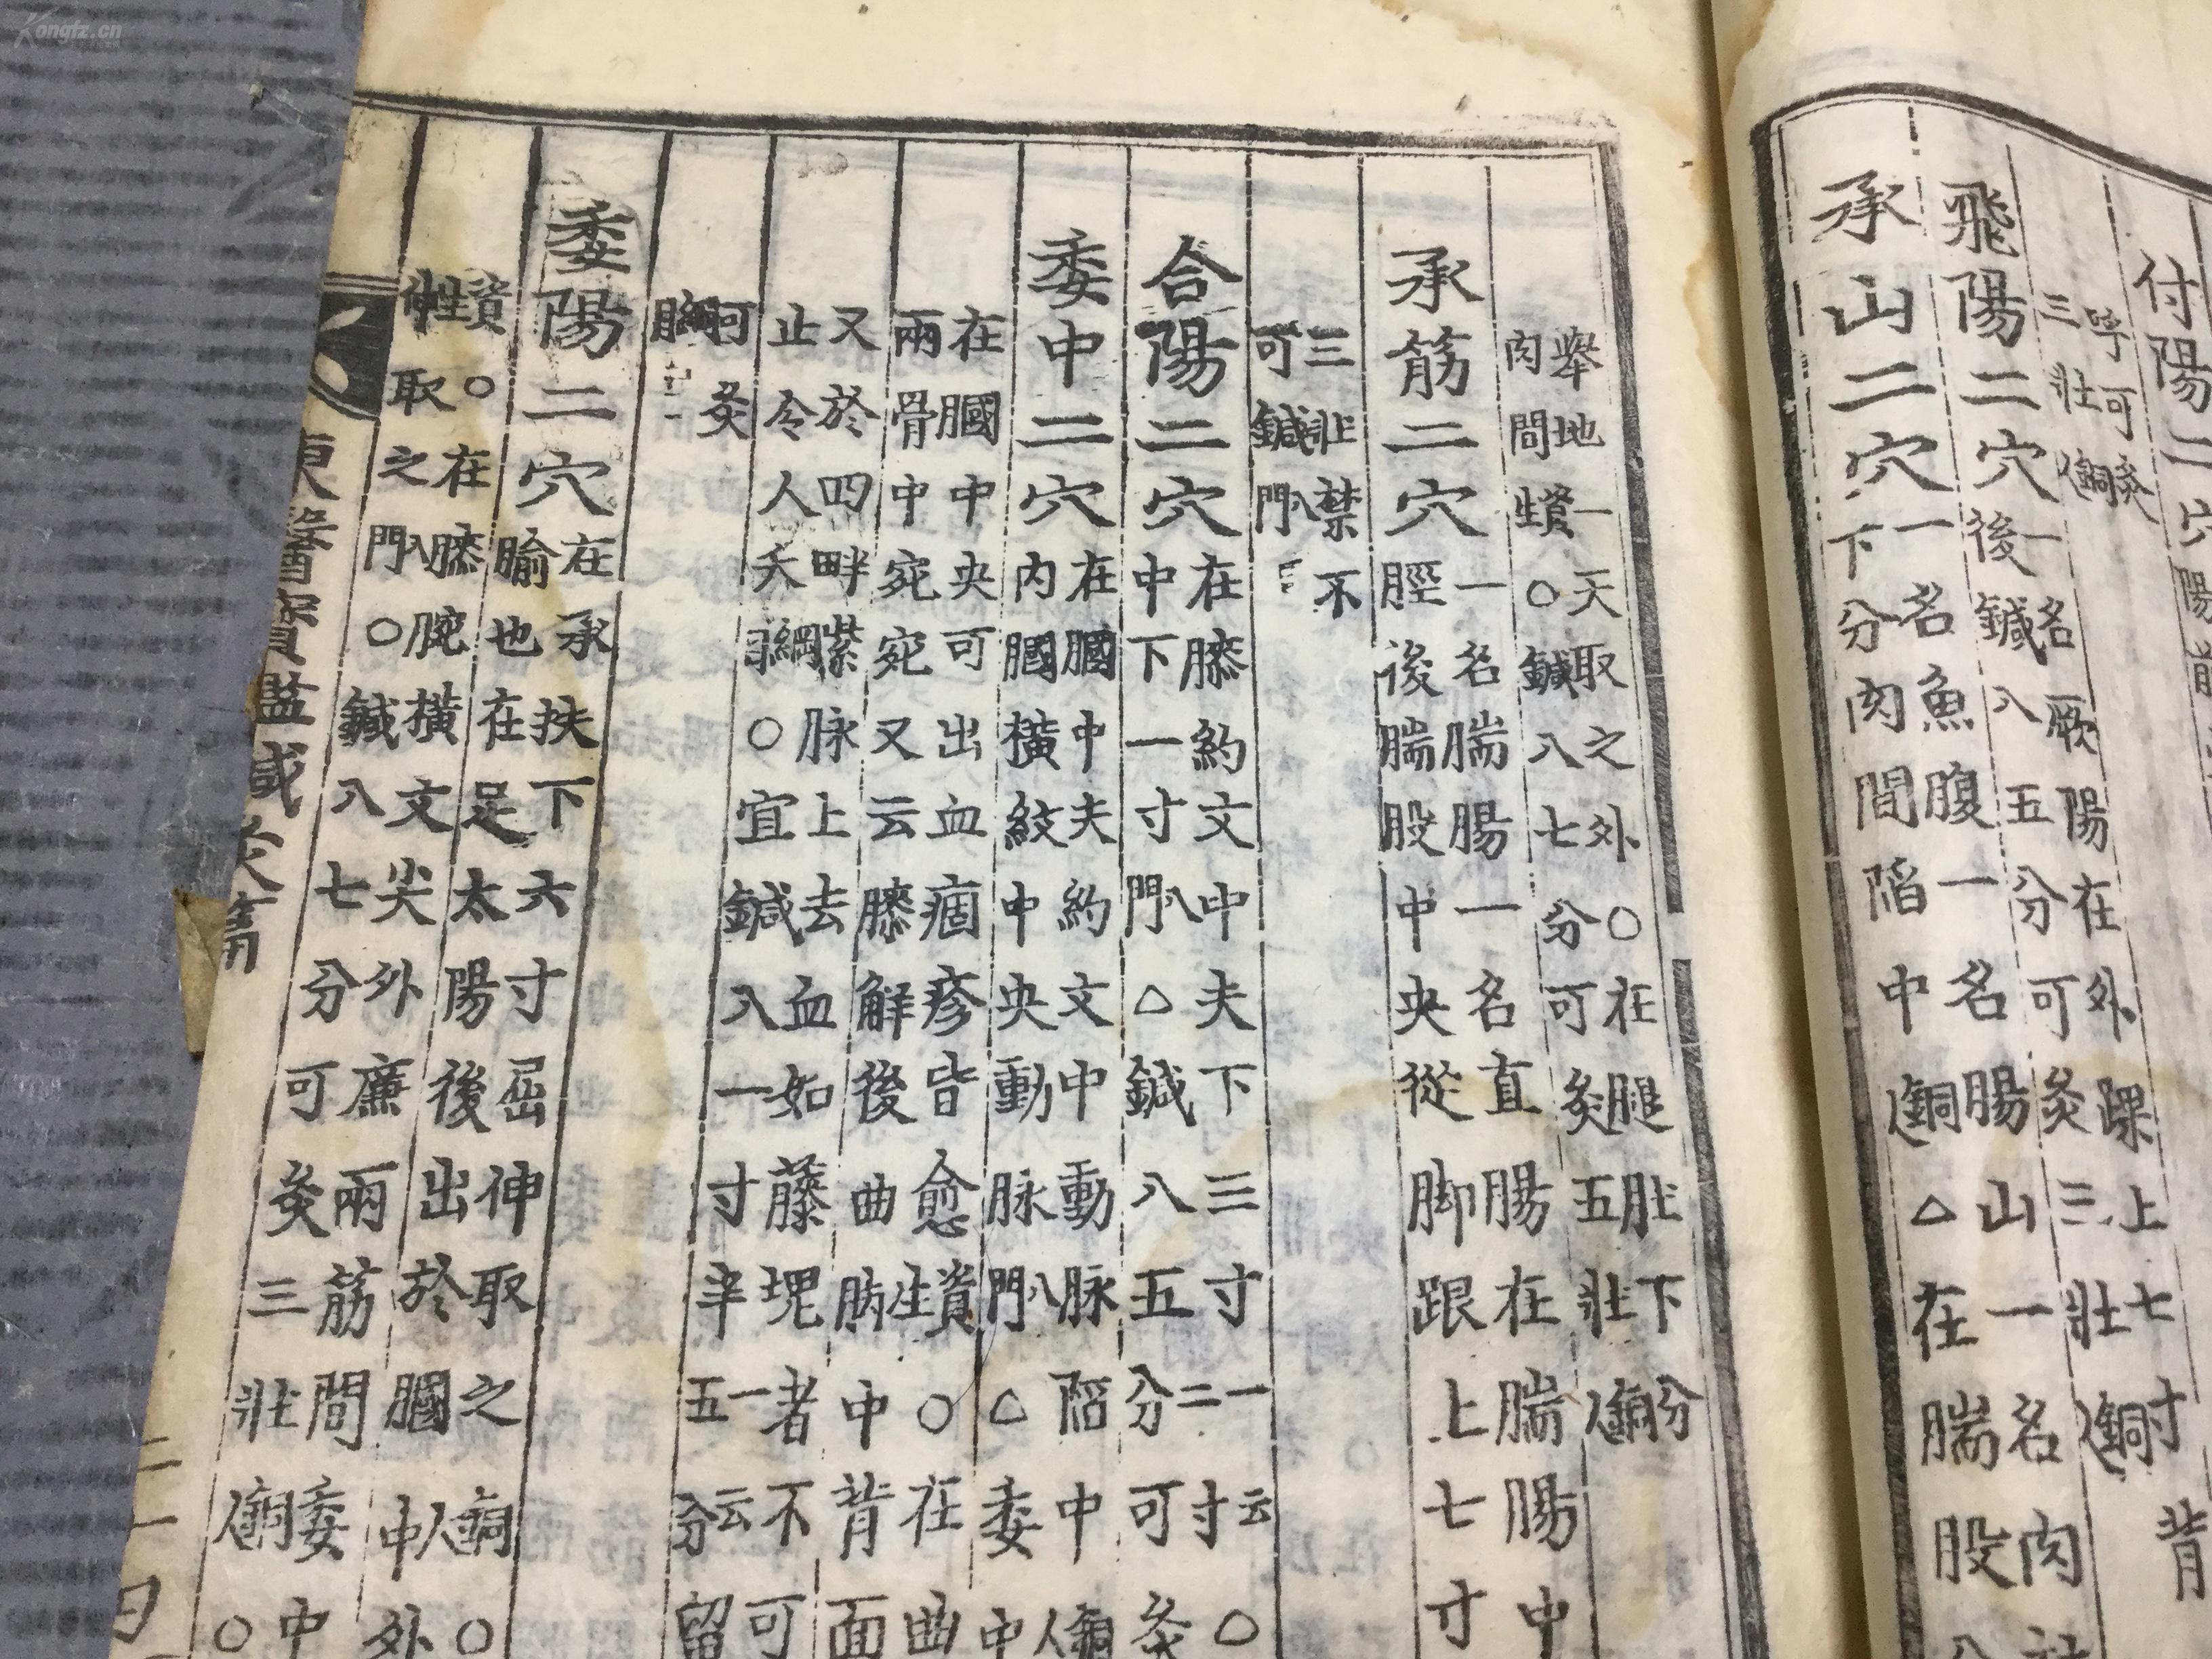 付陽二穴
呼可灸
三壯銅人
飛陽二穴一名厥陽在外踝上七寸
後鍼入五分可灸三壯銅人
承山二穴一名魚腹一名腸山一名肉
下分肉間陷中銅人△在腨股
舉地一尺取之外○在腿肚下分
肉間資生○鍼入七分可灸五壯銅人
承筋二穴一名腨腸一名直腸在腨腸中
脛後腨股中央從脚跟上七寸
三壯禁不
可鍼入門
合陽二穴在膝約文中央下三寸一云二寸○
中下一寸入門△鍼入五分可灸
委中二穴在膕中央約文中動脉陷中銅人
內膕橫紋中央動脉入門△委中
在膕中央可出血痼疹皆愈資生○在曲
兩骨中宛宛又云膝解後曲䐐中背面
又於四畔紫脉上去血如藤塊者不可
止令人夭綱目○宜鍼入一寸半一云五分留
可灸
委陽二穴在承扶下六寸屈伸取之銅人○
腧也在足太陽後出於膕中外
資生○在膝腕橫文尖外廉兩筋間委中
伸取之入門○鍼入七分可灸三壯銅人○
東醫寶鑑鍼灸篇